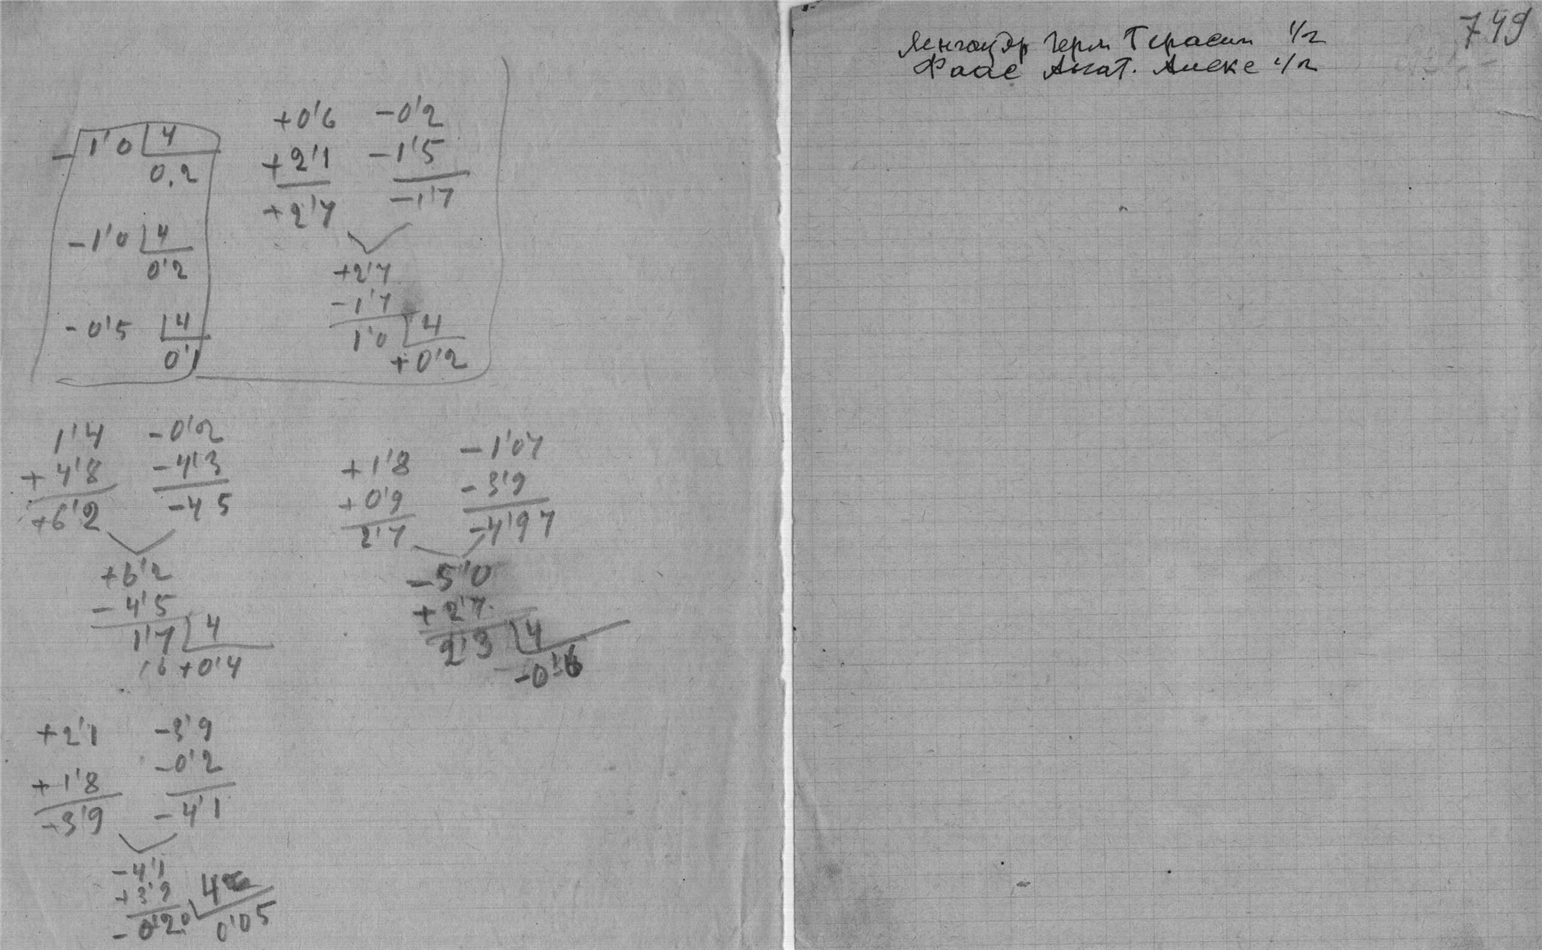 - 1'0 4
0,2
- 1'0 4
0'2
- 0'5 4
0'1
+0'6 -0'2
+2'1 -1'5
+2'7 -1'7
+2'7
-1'7
1'0 4
+0'2
1'4 -0'2
+ 4'8 -4'3
+6'2 -4 5
+6'2
- 4'5
1'7 4
16 +0'4
+1'8 -1'07
+0'9 -3'9
2'7 -4'97
-5'0
+2'7
2'3 4
-0'6
+2'1 -3'9
+1'8 -0'2
-3'9 -4'1
-4'1
+3'9
-0'20 4
0'05
749
Герм Герасим 1/2
Фаас Анат. Алекс 1/2